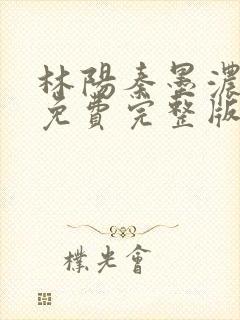 林陽秦墨濃
免費完整版
樸光會